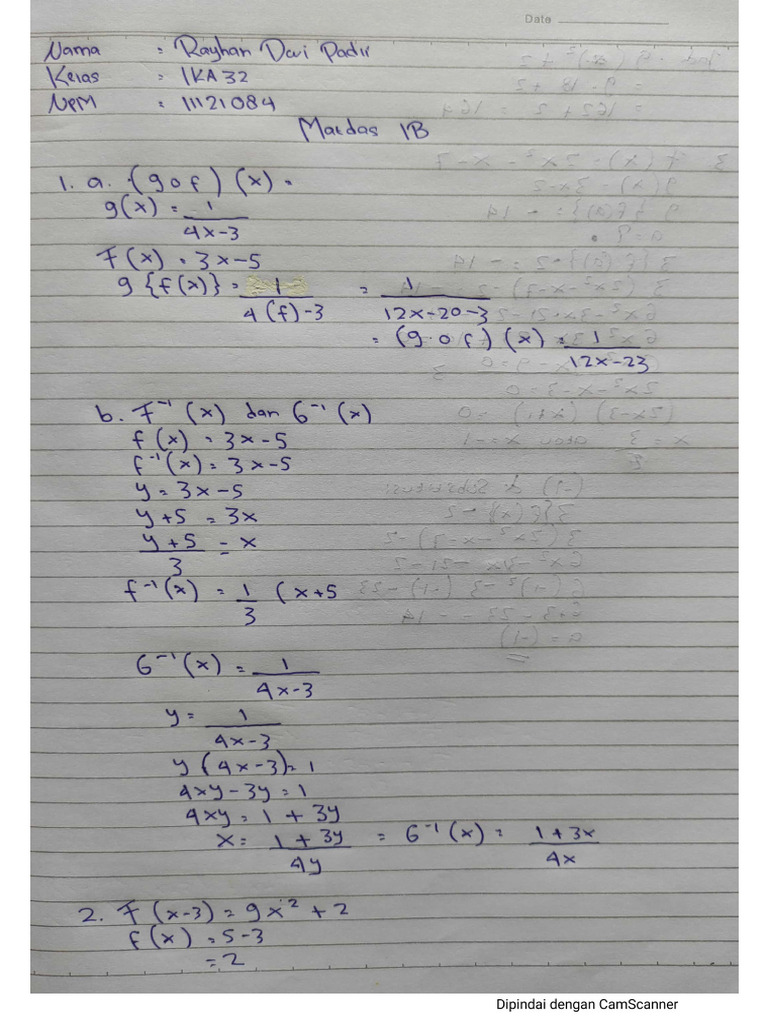 Date
Nama : Rayhan Dwi Padir
Kelas : 1KA32
NPM : 11121084
Matdas 1B
1. a. (g o f) (x) =
g(x) = 1 / 4x-3
F(x) = 3x-5
g {f(x)} = 1 / 4(f)-3 = 1 / 12x-20-3
= (g o f) (x) = 1 / 12x-23
b. F⁻¹(x) dan G⁻¹(x)
f(x) = 3x-5
f⁻¹(x) = 3x-5
y = 3x-5
y+5 = 3x
y+5 / 3 = x
f⁻¹(x) = 1 / 3 (x+5
G⁻¹(x) = 1 / 4x-3
y = 1 / 4x-3
y (4x-3) = 1
4xy-3y = 1
4xy = 1 + 3y
x = 1 + 3y / 4y = G⁻¹(x) = 1 + 3x / 4x
2. F(x-3) = 9x² + 2
f(x) = 5-3
= 2
Dipindai dengan CamScanner